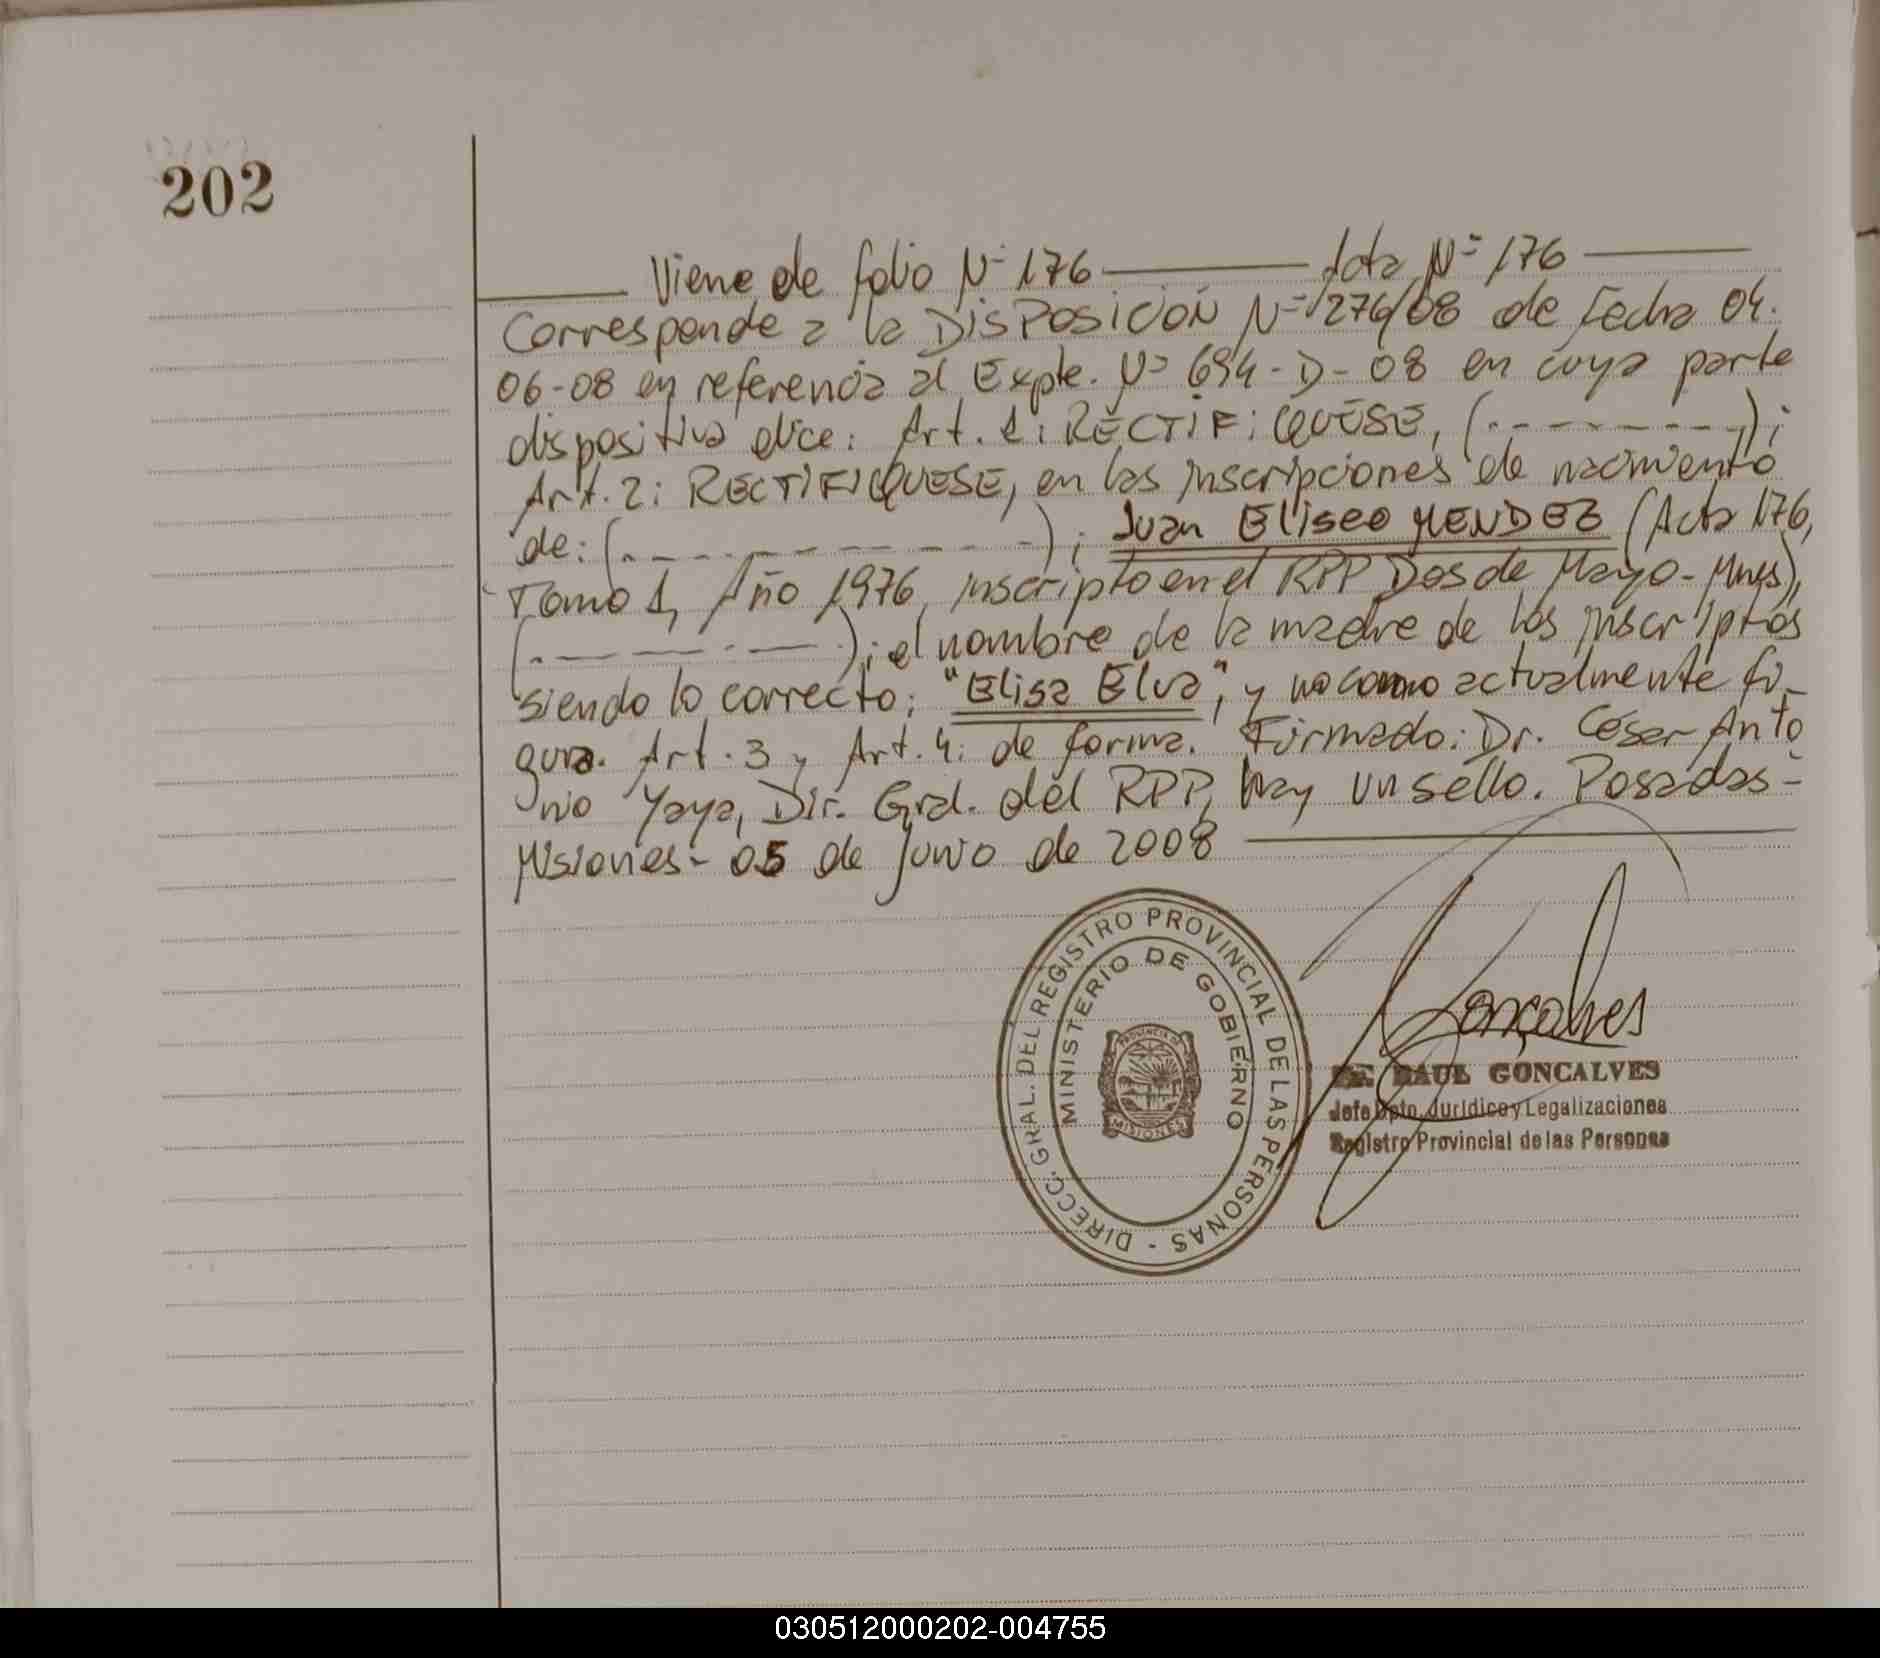 202
Viene de folio Nº 176 ——— Acta Nº 176 ———
Corresponde a la DISPOSICIÓN Nº 1276/08 de Fecha 04.
06-08 en referencia al Expte. Nº 694-D-08 en cuya parte
dispositiva dice: Art. 1: RECTIFIQUESE, (- - - - - - - -);
Art. 2: RECTIFIQUESE, en las inscripciones de nacimiento
de: (- - - - - - - - - -); Juan Eliseo MENDEZ (Acta 176,
Tomo 1, Año 1976, inscripto en el RPP Dos de Mayo - Mnes),
(- - - - - - -); el nombre de la madre de los inscriptos
siendo lo correcto: "Elisa Elva", y no como actualmente fi-
gura. Art. 3 y Art. 4: de forma. Firmado: Dr. César Anto
nio Yaya, Dir. Gral. del RPP, hay un sello. Posadas -
Misiones - 05 de junio de 2008
DIRECC. GRAL. DEL REGISTRO PROVINCIAL DE LAS PERSONAS -
MINISTERIO DE GOBIERNO
PROVINCIA DE
MISIONES
Gonçalves
RAUL GONCALVES
Jefe Dpto. Jurídico y Legalizaciones
Registro Provincial de las Personas
030512000202-004755